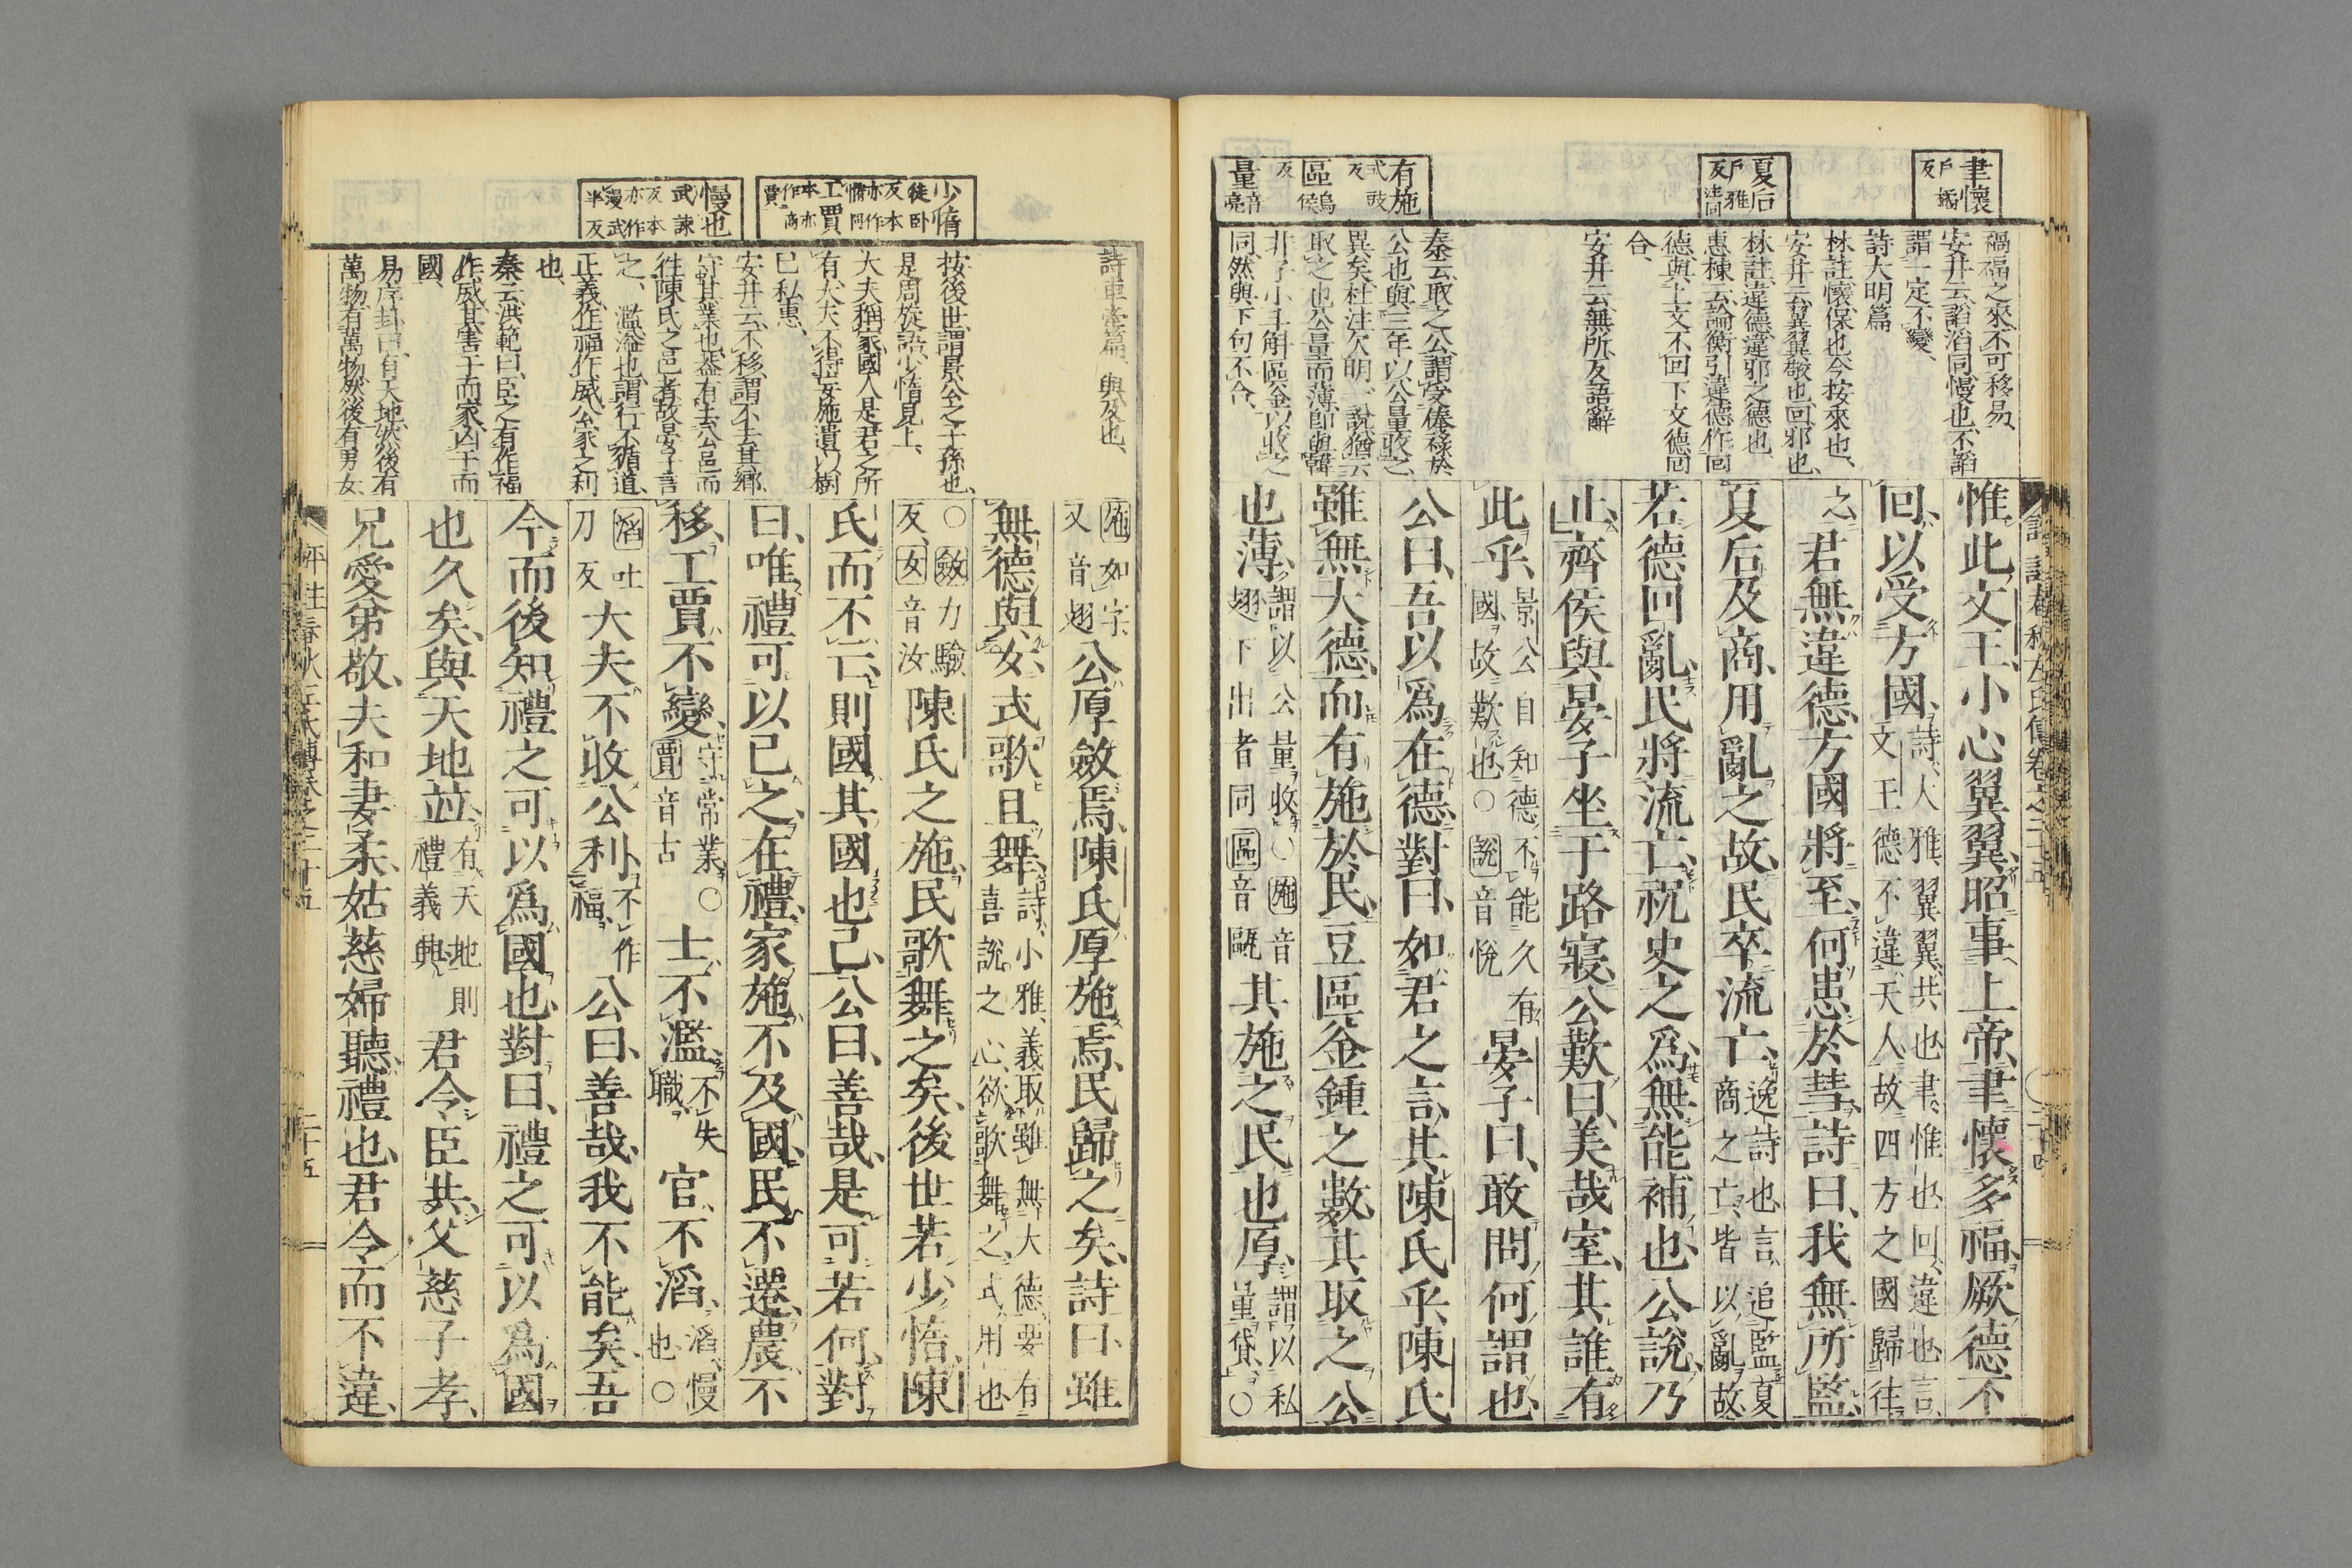 聿懷戶橘反
夏后戶雅反注同
有施式豉反
區烏侯反
量音亮
禍福之來不可移易、
安井云、謟滔同、慢也、不謟
謂一定不變、
詩大明篇
林註、懷、保也、今按來也、
安井云、翼翼敬也、回、邪也、
林註、違德、違邪之德也、
惠棟云、論衡引違德作回
德、與上文不回、下文德回
合、
安井云、無所、反語辭
秦云、取之公、謂受俸祿於
公也、與三年以公量收之
異矣、杜注欠明、一說、猶云
取之也公量而薄、卽與韓
非子小斗斛區釜以收之
同、然與下句不合、
惟此文王、小心翼翼、昭事上帝、聿懷多福、厥德不
回、以受方國、詩、大雅、翼翼、共也、聿、惟也、回、違也、言、文王德不違天人、故四方之國歸往
之、君無違德、方國將至、何患於彗、詩曰、我無所監、
夏后及商、用亂之故、民卒流亡、逸詩也、言、追監夏商之亡、皆以亂故、
若德回亂、民將流亡、祝史之爲、無能補也、公說、乃
止、齊侯與晏子坐于路寢、公歎曰、美哉室、其誰有
此乎、景公自知德不能久有國、故歎也、○說音悅晏子曰、敢問何謂也、
公曰、吾以爲在德、對曰、如君之言、其陳氏乎、陳氏
雖無大德、而有施於民、豆區釜鍾之數、其取之公
也薄、謂以公量收、○施音翅下出者同區音甌其施之民也厚、謂以私量貸、○
少惰徒臥反本亦作惰同
工賈本亦作商賈
慢也武諫反本亦作漫武半反
詩車舝篇、與及也、
按後世、謂景公之子孫也、
是周旋語、少惰見上、
大夫稱家、國人是君之所
有、大夫不得妄施遺以樹
已私惠、
安井云、不移、謂不去其鄕、
守其業也、蓋有去公邑而
往陳氏之邑者、故晏子言
之、濫、淫也、謂行不循道、
正義、作福作威、公家之利
也、
秦云、洪範曰、臣之有作福
作威、其害于而家、凶于而
國、
易序卦曰、有天地、然後有
萬物、有萬物、然後有男女、
施如字、又音翅公厚斂焉、陳氏厚施焉、民歸之矣、詩曰、雖
無德與女、式歌且舞、詩、小雅、義取雖無大德、要有喜說之心、欲歌舞之、式、用也
○斂力驗反、女音汝陳氏之施、民歌舞之矣、後世若少惰、陳
氏而不亡、則國其國也已、公曰、善哉、是可若何、對
曰、唯禮可以已之、在禮、家施不及國、民不遷、農不
移、工賈不變、守常業、○賈音古士不濫、不失職官不滔、滔、慢也、○
滔吐刀反大夫不收公利、不作福、公曰、善哉、我不能矣、吾
今而後知禮之可以爲國也、對曰、禮之可以爲國
也久矣、與天地並、有天地則禮義興、君令、臣共、父慈子孝、
兄愛弟敬、夫和妻柔、姑慈婦聽、禮也、君令而不違、